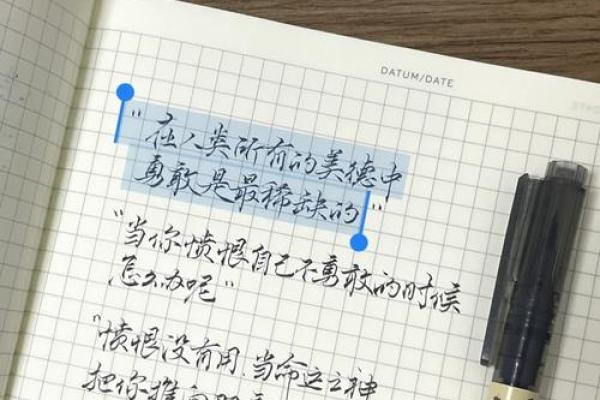 DATUM/DATE
"在人类所有的美德中
勇敢是最稀缺的"
"当你愤恨自己不勇敢的时候
怎么办呢"
"愤恨没有用.当命运之神
把你推向